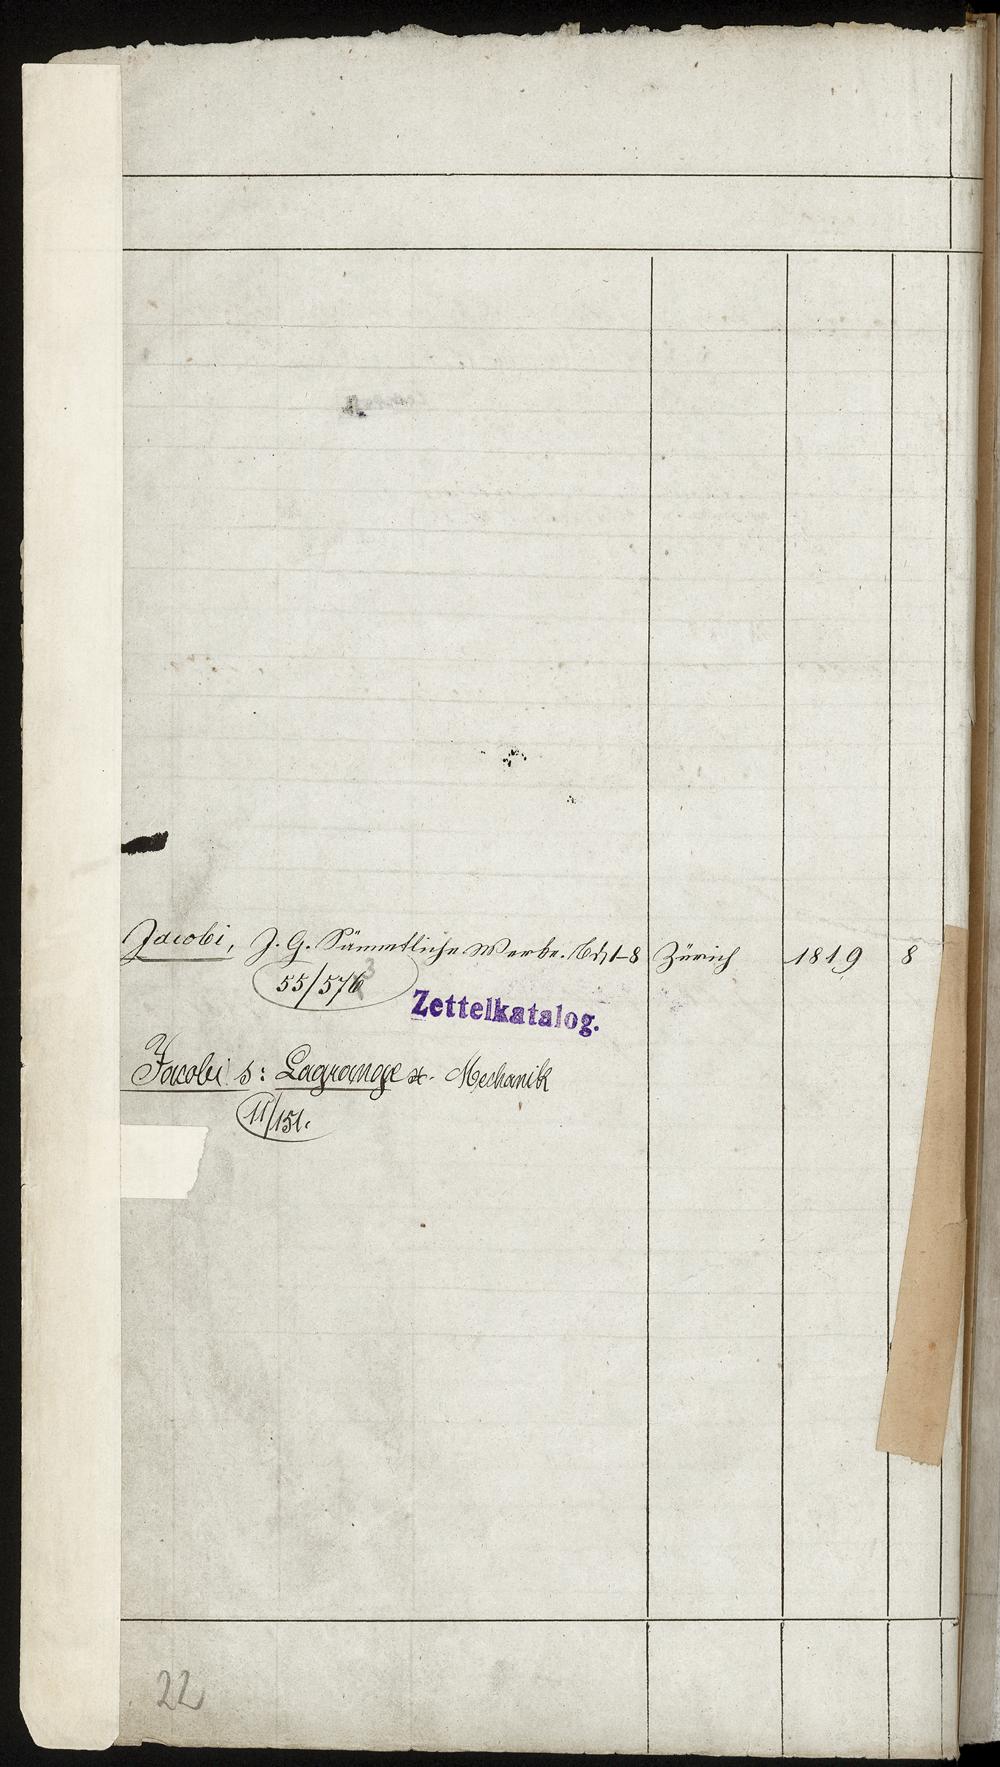 Jacobi, J. G. Sämmtliche Werke. Bd, 1–8 Zürich 1819 8
55/573
Zettelkatalog.
Jacobi s: Lagrange Mechanik
11/151.
22